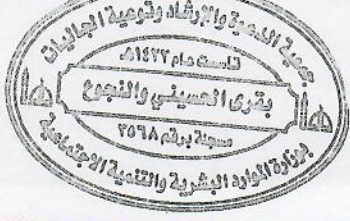 جمعية الدعوة والإرشاد وتوعية الجاليات
تأسست عام ١٤٢٢هـ
بقرى الحسيني والنجوع
مسجلة برقم ٣٥٦٨
بوزارة الموارد البشرية والتنمية الاجتماعية